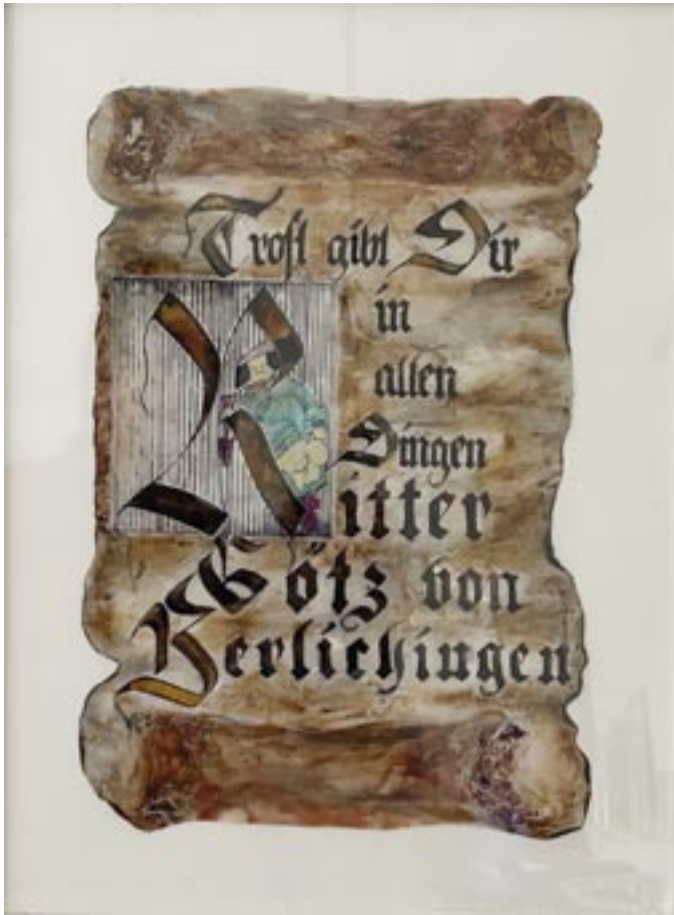 Trost gibt Dir
in
allen
Dingen
Ritter
Götz von
Berlichingen